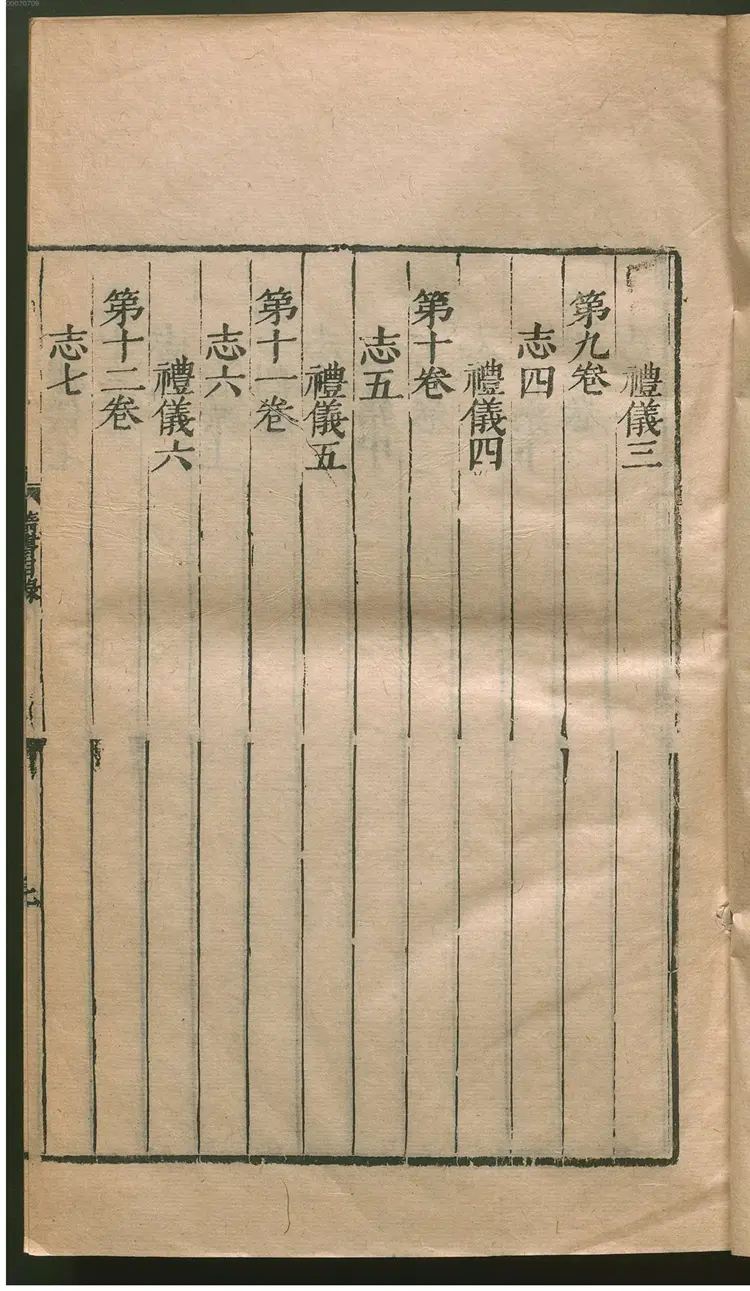 禮儀三
第九卷
志四
禮儀四
第十卷
志五
禮儀五
第十一卷
志六
禮儀六
第十二卷
志七